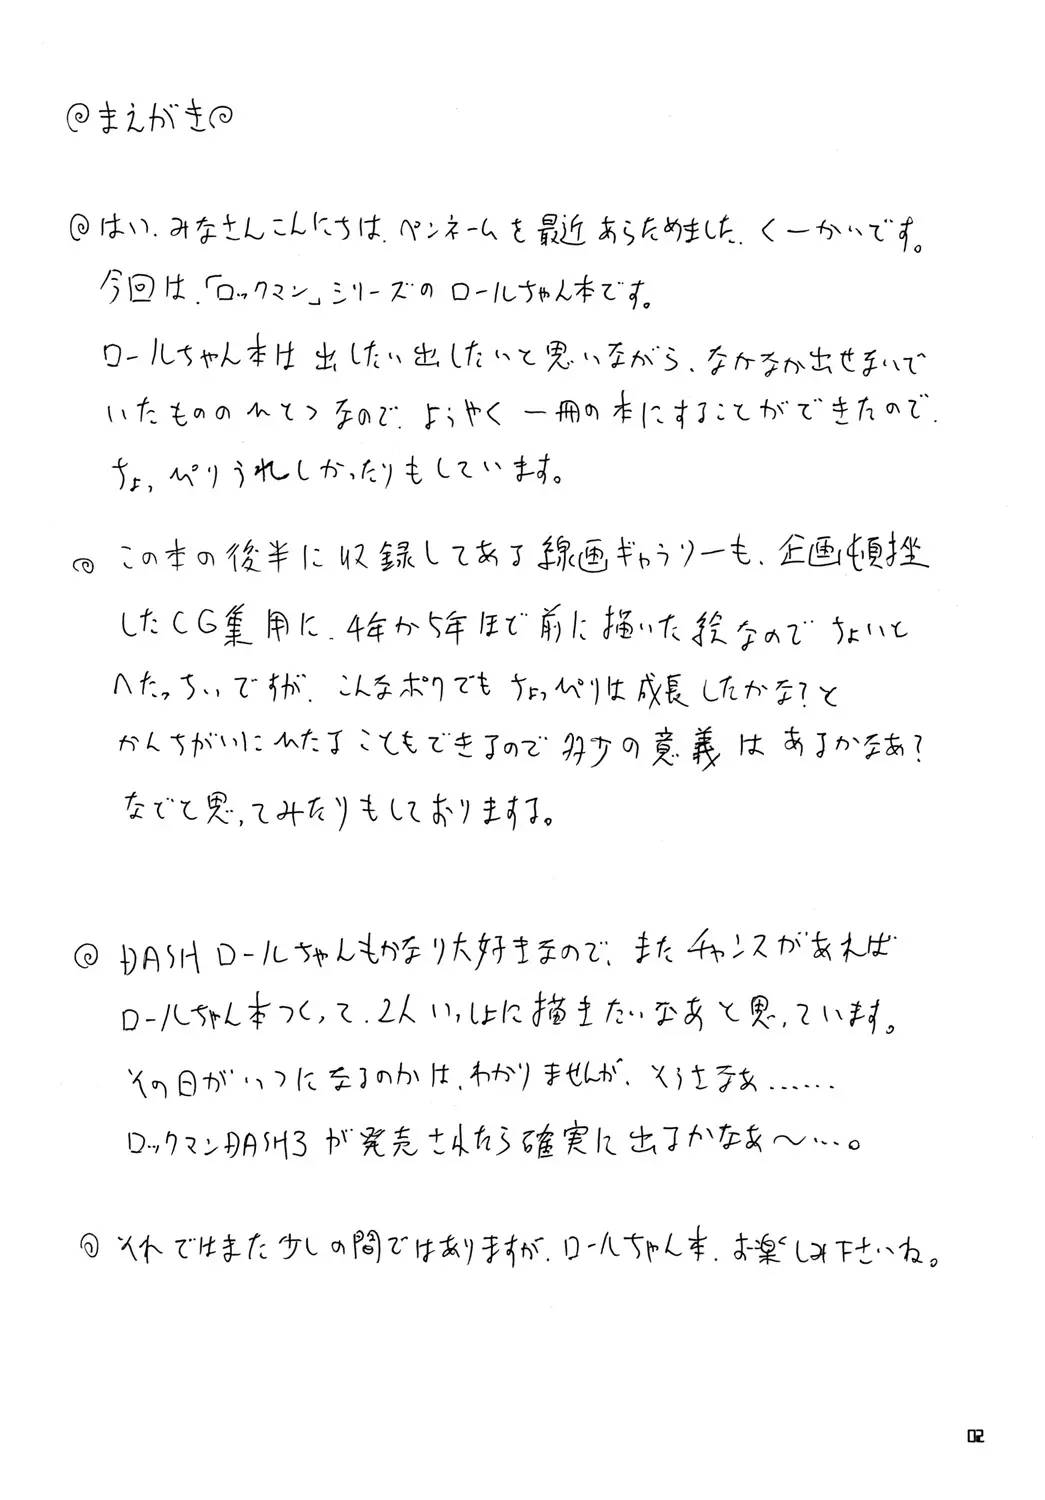 まえがき
はい、みなさんこんにちは、ペンネームを最近あらためました、くーかいです。
今回は、「ロックマン」シリーズのロールちゃん本です。
ロールちゃん本は出したい出したいと思いながら、なかなか出せまいで
いたもののひとつなので、ようやく一冊の本にすることができたので、
ちょっぴりうれしかったりもしています。
この本の後半に収録してある線画ギャラリーも、企画頓挫
したCG集用に、4年から5年ほど前に描いた絵なのでちょいと
へたっちぃですが、こんなボクでもちょっぴりは成長したかな?と
かんちがいにひたることもできるので多少の意義はあるかなあ?
などと思ってみたりもしておりまする。
DASHロールちゃんもかなり大好きなので、またチャンスがあれば
ロールちゃん本つくって、2人いっしょに描きたいなあと思っています。
その日がいつになるのかは、わかりませんが、そうさなあ……
ロックマンDASH3が発売されたら確実に出るかなあ〜…。
それではまた少しの間ではありますが、ロールちゃん本、お楽しみ下さいね。
02